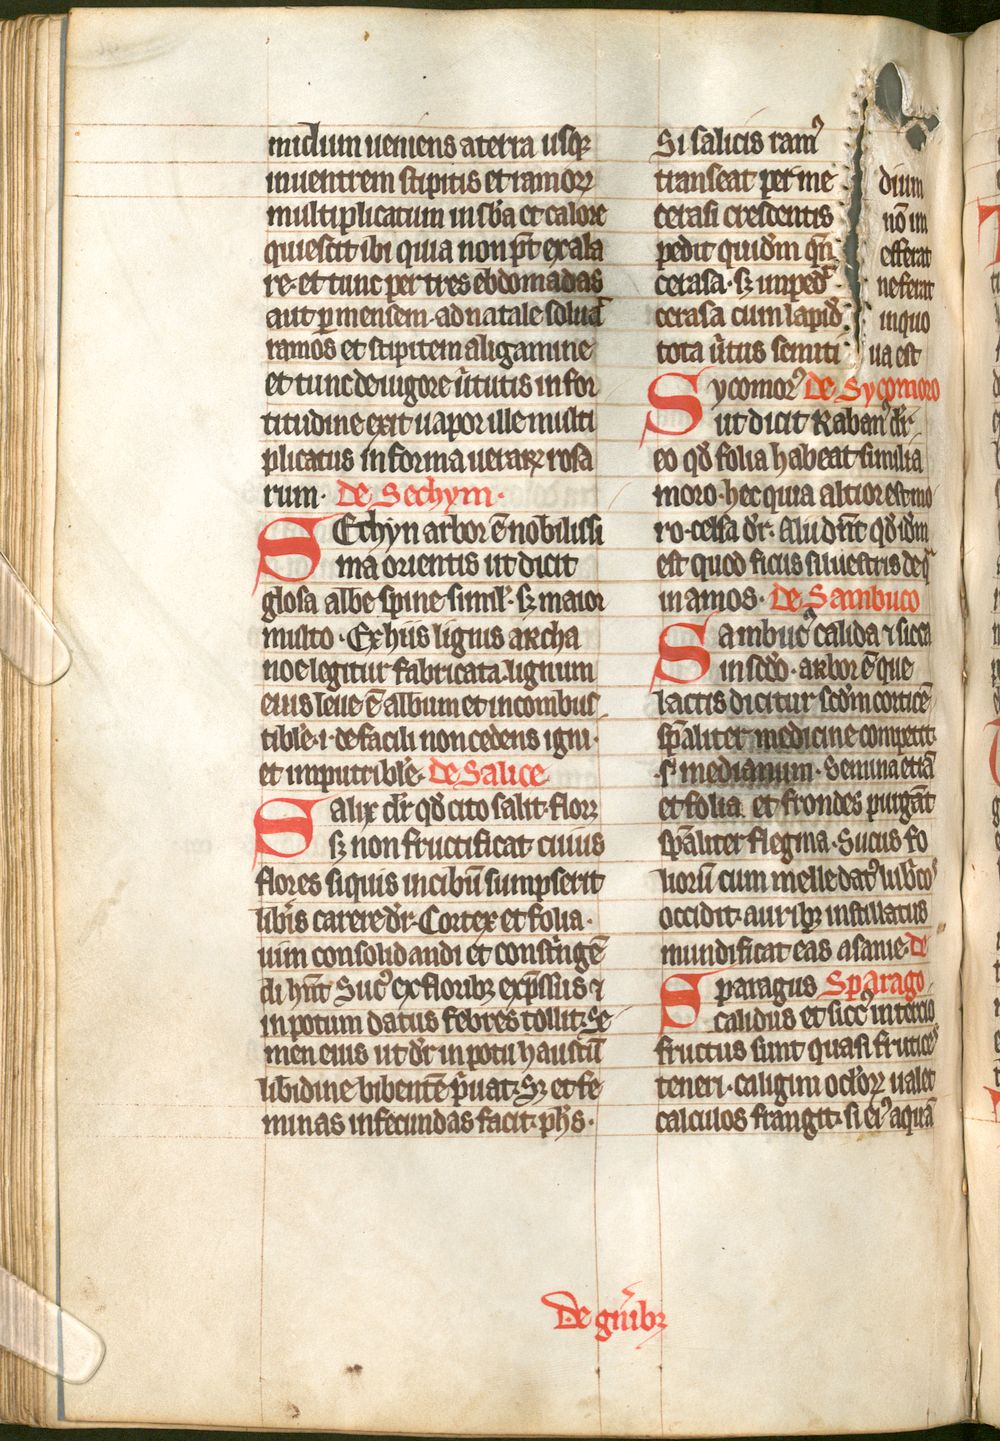 midum ueniens a terra usq3
in uentrem stipitis et ramorꝝ
multiplicatum in sb̄a et calore
quiescit ibi quia non pt̄ exala
re· et tunc per tres ebdomadas
aut p mensem· ad natale soluit̄
ramos et stipitem a ligamine
et tunc de uigore ūtutis in for
titudine exit uapor ille multi
plicatus in forma ueraꝝ rosa
rum· de Sechym·
SEthyn arbor ē nobilissi
ma orientis ut dicit
glosa albe spine simil'· sꝫ maior
multo· Ex hiis lignis archa
noe legitur fabricata· lignum
eius leue ē album et incombus
tibile· i· de facili non cedens igni·
et imputribile· de Salice
Salix dr̄ qd̓ cito salit· florꝫ
sꝫ non fructificat cuius
flores si quis in cibū sumpserit
lib̓is carere dr̄· Cortex et folia·
uim consolidandi et constringē
di hn̄t Suc̓ ex floribꝫ exp̄ssus ⁊
in potum datus febres tollit· Se
men eius ut dr̄ in potu haustū
libidine bibentē p̓uat· Sꝫ et fe
minas infecundas facit· ph̓s·
Si salicis ram̓
transeat per me dium
cerasi crescentis nō im
pedit quidm̄ qn̄ efferat
cerasa· sꝫ imped̓ ne ferat
cerasa cum lapid̓ in quo
tota ūtus semiti ua est
Sycomor̓ de Sycomoro
ut dicit Raban̓ dr̄
eo qd̓ folia habeat similia
moro· hec quia altior est mo
ro· celsa dr̄· Alii dn̄t qd̓ idm̄
est quod ficus siluestris de q̓
in amos· de Sambuco
Sambuc̓ calida ⁊ sicca
in scdo· arbor ē que
lactis dicitur scdm̄ corticē
sp̄aliter medicine competit·
·s· medianum· Semina etiā
et folia et frondes purgāt
sp̄aliter flegma· Sucus fo
liorū cum melle dat̓ lūbrico̓
occidit· auribꝫ instillatus
mundificat eas a sanie· de
Sparagus Sparago·
calidus et sicc̓ in tercio
fructus sunt quasi frutice̓
teneri· caligini oclorꝝ ualet
calculos frangit· si ei̓ aquā
De gn̓ibꝫ